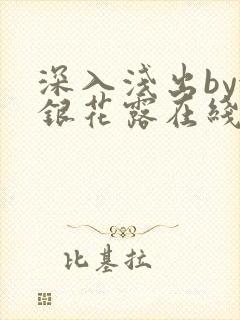 深入浅出by
銀花露在綫
比基拉